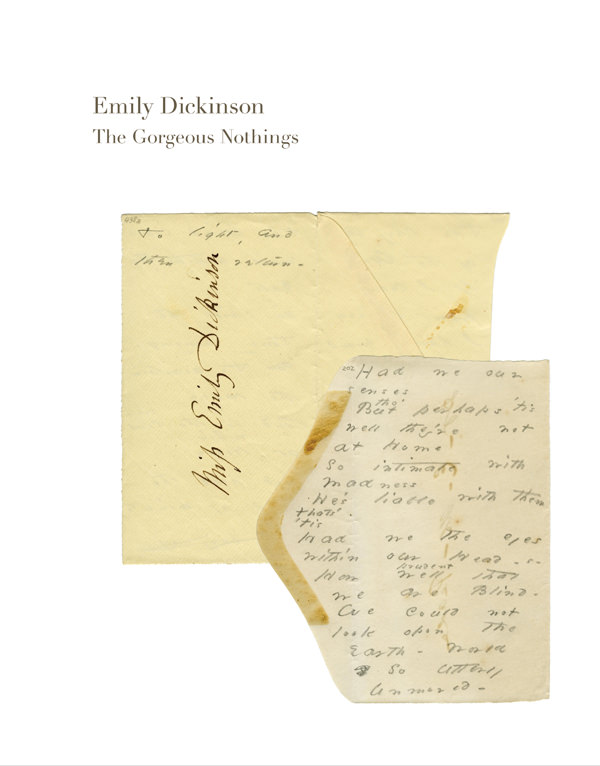 Emily Dickinson
The Gorgeous Nothings
To light, and
then return -
Miss Emily Dickinson
202
Had we our
senses
tho'
But perhaps 'tis
well they're not
at Home
So intimate with
Madness
He's liable with them
that's
'tis
Had we the eyes
within our Head - s -
prudent
How well that
we are Blind -
We could not
look upon the
Earth - World
So utterly
Unmoved -